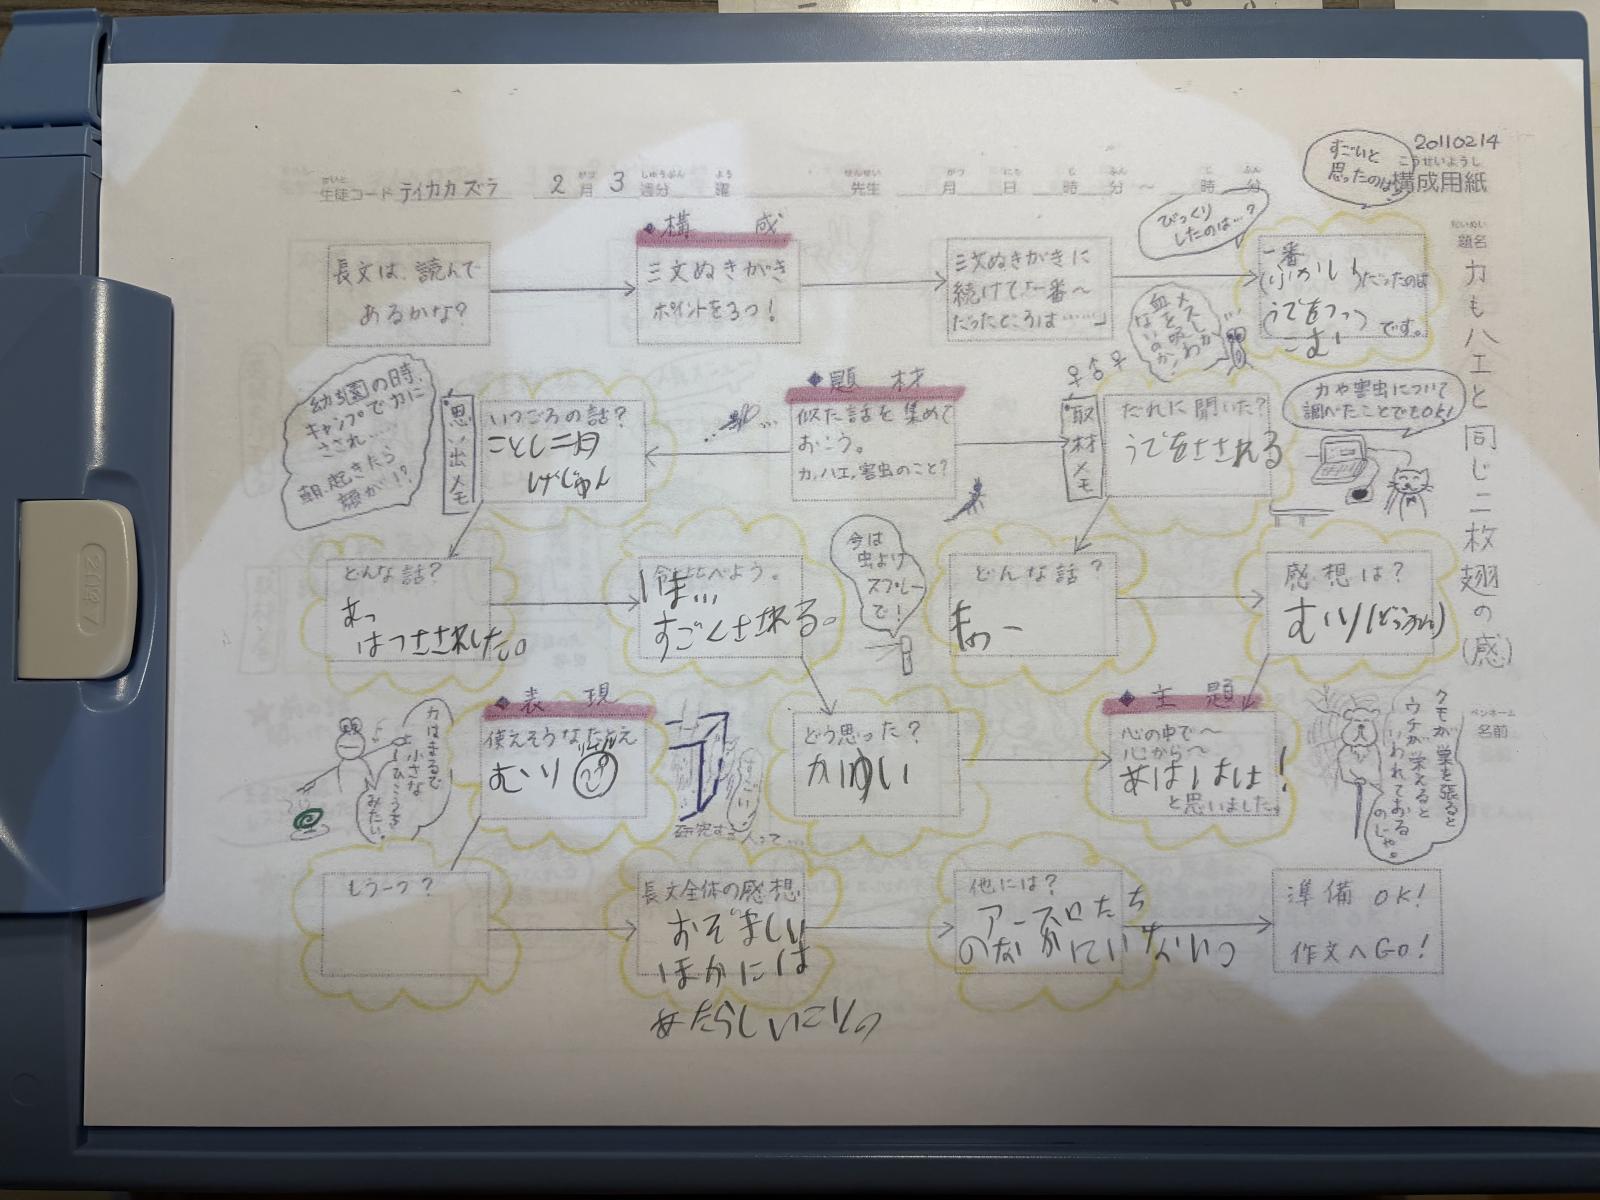 20110214
こうせいようし
構成用紙
生徒コード テイカカズラ
2月3週分 曜
先生 月 日 時 分 〜 時 分
だいめい
題名
カもハエと同じ二枚翅の(感)
ペンネーム
名前
すごいと
思ったのは?
びっくり
したのは…?
長文は、読んで
あるかな?
◆構成
三文ぬきがき
ポイントを3つ!
三文ぬきがきに
続けて「一番〜
だったところは……」
一番
だったのは
です。
幼稚園の時、
キャンプでカに
さされ……
朝、起きたら
顔が!?
思い出メモ
いつごろの話?
ことし二月
げじゅん
◆題材
似た話を集めて
おこう。
カ、ハエ、害虫のこと?
取材メモ
だれに聞いた?
うでをさされる
カや害虫について
調べたことでもOK!
どんな話?
あっ
はっさされした。
今と比べよう。
いま…
すごくさされる。
今は
虫よけ
スプレー
で!
どんな話?
感想は?
むり
カはまるで
小さな
ひこうき
みたい。
◆表現
使えそうなたとえ
むり
研究する
人って…
すごい
どう思った?
かゆい
◆主題
心の中で〜
心から〜
あはははは!
と思いました。
クモが巣を張ると
ウチが栄えると
いわれておる
のじゃ。
もう一つ?
長文全体の感想
おぞましい
ほかには
あたらしいこれの
他には?
のなかにいないっ
準備OK!
作文へGO!